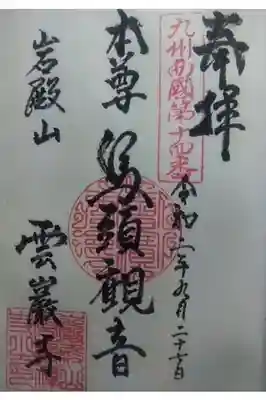 奉拝
九州西國第十四番
令和二年九月二十六日
本尊
馬頭觀音
岩殿山
雲巖寺